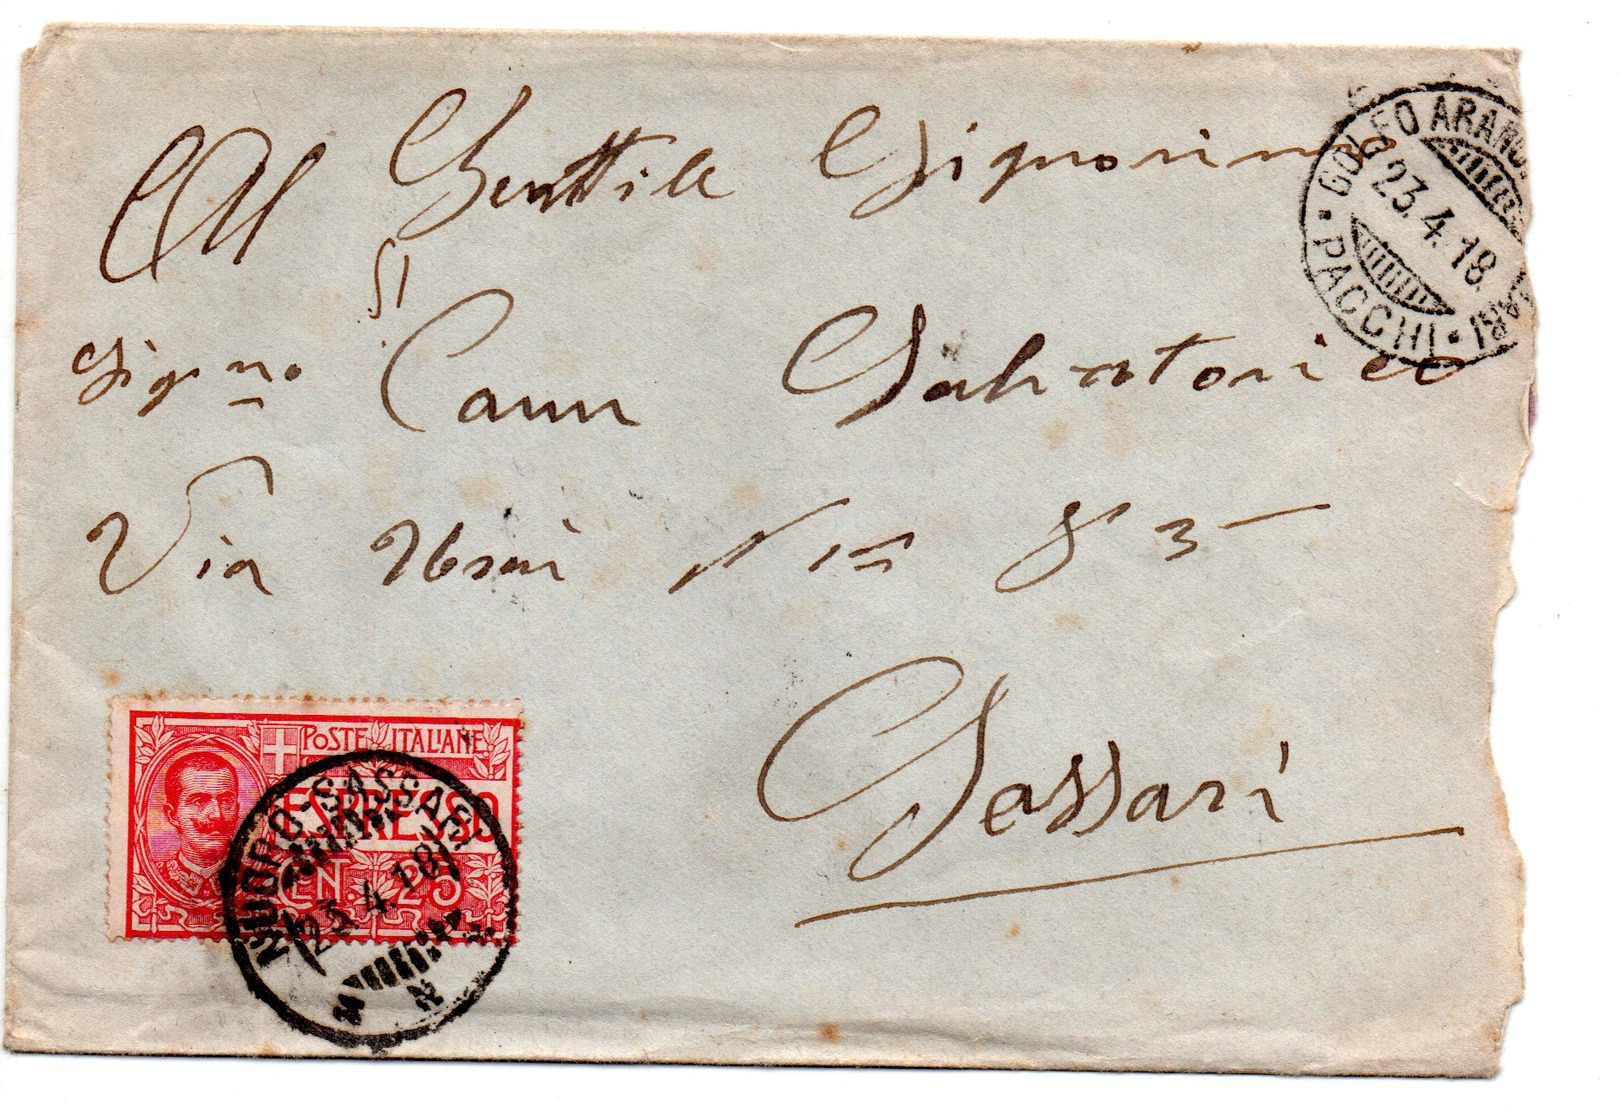 Al Gentile Signorina
Signa Cann Salvatorica
Via Usai Nro 83
Sassari
GOLFO ARANCI
23.4.18
PACCHI
POSTE ITALIANE
ESPRESSO
CEN. 25
NUORO-SASSARI
23.4.18